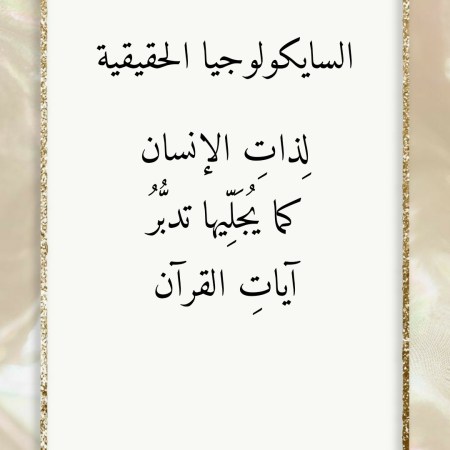 السايكولوجيا الحقيقية
لِذاتِ الإنسان
كما يُجَلِّيها تدبُّرُ
آياتِ القرآن